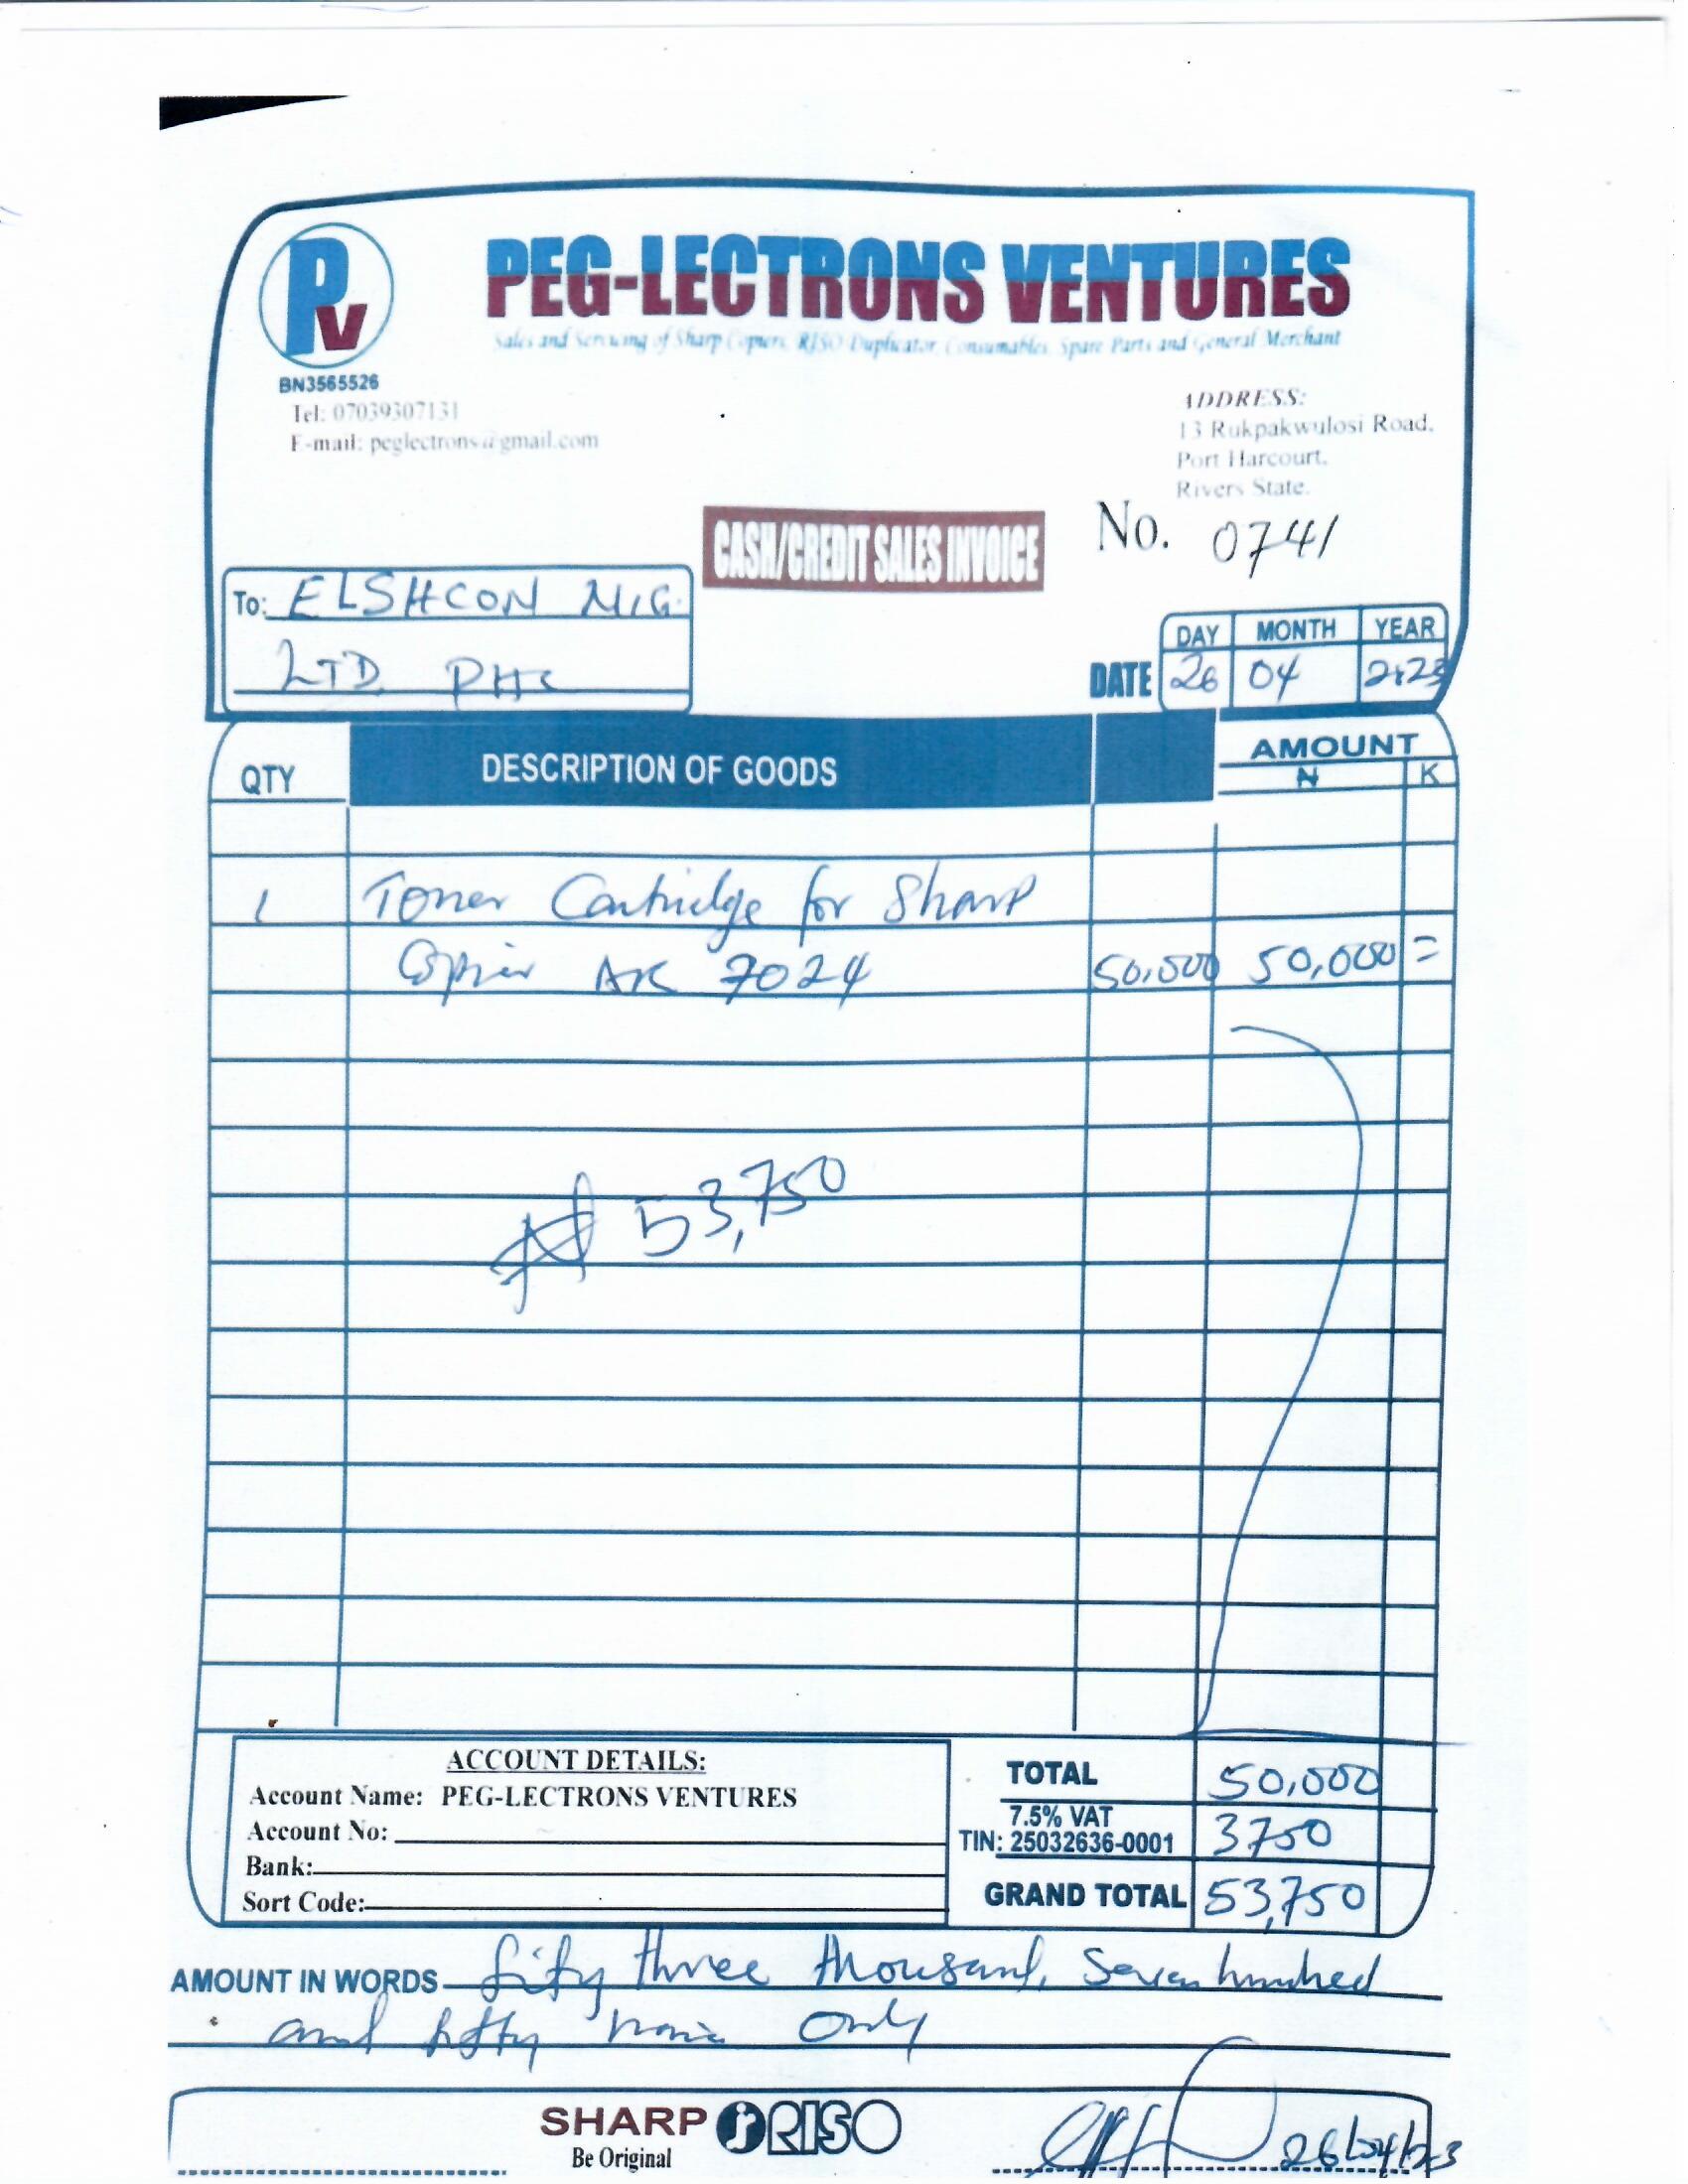 PV
PEG-LECTRONS VENTURES
Sales and Servicing of Sharp Copiers, RISO Duplicator, Consumables, Spare Parts and General Merchant
BN3565526
Tel: 07039307131
E-mail: peglectrons@gmail.com
ADDRESS:
13 Rukpakwulosi Road,
Port Harcourt,
Rivers State.
CASH/CREDIT SALES INVOICE
No. 0741
To: ELSHCON NIG.
LTD PHC
DAY MONTH YEAR
DATE 26 04 2023
QTY DESCRIPTION OF GOODS AMOUNT
₦ K
1 Toner Cartridge for Sharp
Copier AR 7024 50,000 50,000 =
₦ 53,750
ACCOUNT DETAILS:
Account Name: PEG-LECTRONS VENTURES
Account No:
Bank:
Sort Code:
TOTAL 50,000
7.5% VAT
TIN: 25032636-0001 3750
GRAND TOTAL 53,750
AMOUNT IN WORDS fifty three thousand, Seven hundred
and fifty naira Only
SHARP RISO
Be Original
26/04/23